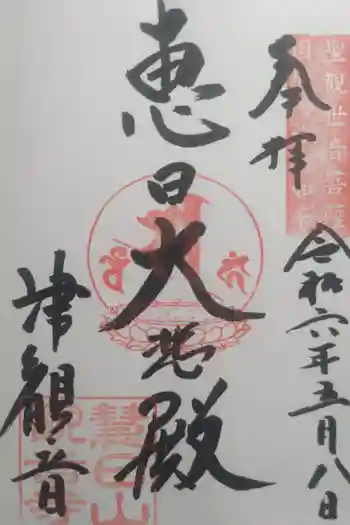 聖観世音菩薩
奉拝
令和六年五月八日
恵日大悲殿
津観音
慧日山
観音寺